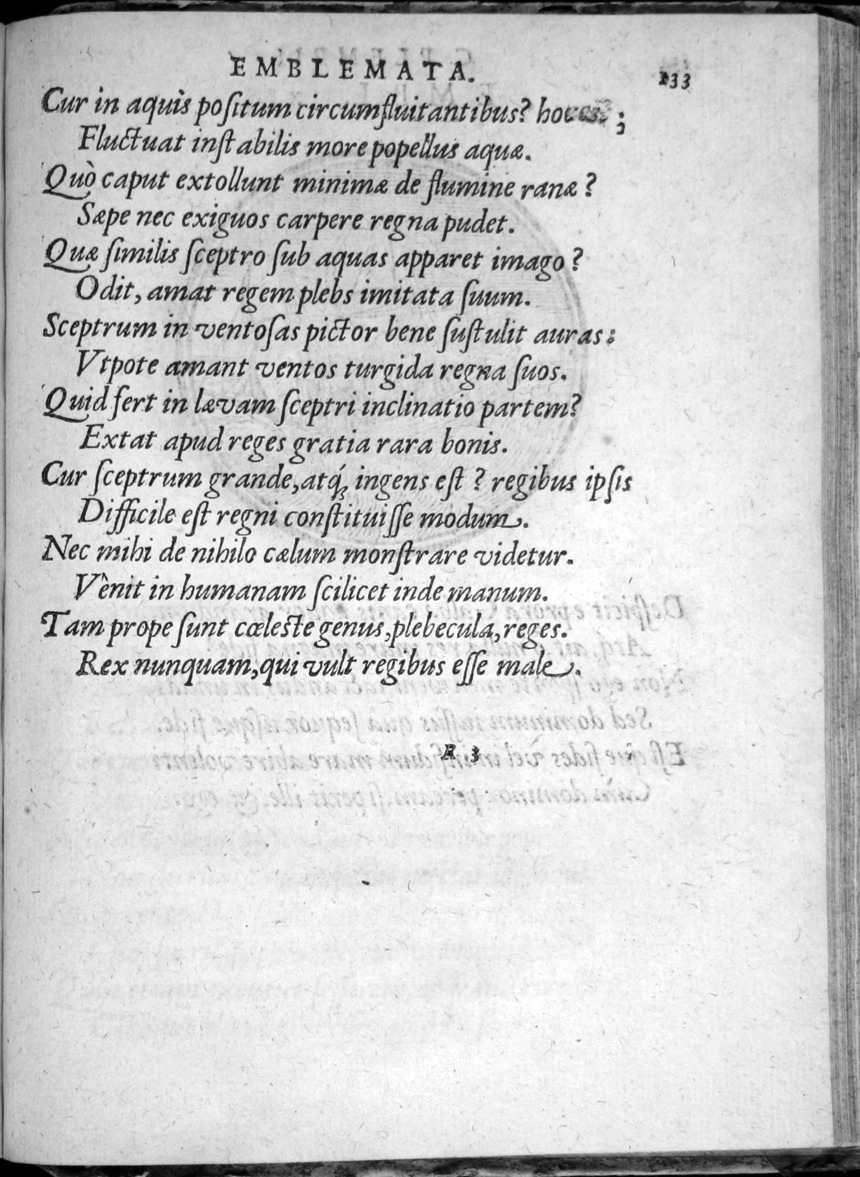 EMBLEMATA. 133
Cur in aquis positum circumfluitantibus?
Fluctuat instabilis more popellus aquæ.
Quò caput extollunt minimæ de flumine ranæ?
Sæpe nec exiguos carpere regna pudet.
Quæ similis sceptro sub aquas apparet imago?
Odit, amat regem plebs imitata suum.
Sceptrum in ventosas pictor bene sustulit auras:
Vtpote amant ventos turgida regna suos.
Quid fert in lævam sceptri inclinatio partem?
Extat apud reges gratia rara bonis.
Cur sceptrum grande, atq́; ingens est? regibus ipsis
Difficile est regni constituisse modum.
Nec mihi de nihilo cælum monstrare videtur.
Vènit in humanam scilicet inde manum.
Tam prope sunt cœleste genus, plebecula, reges.
Rex nunquam, qui vult regibus esse male.
R 3